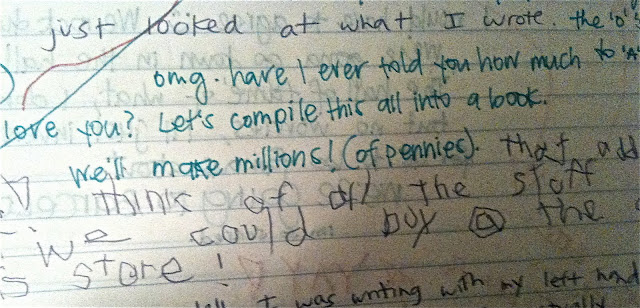 just looked at what I wrote. the 'o'
omg. have I ever told you how much to 'A'
love you? Let's compile this all into a book.
We'll make millions! (of pennies). that add
think of all the stuff
we could buy @ the
store!
I was writing with my left hand